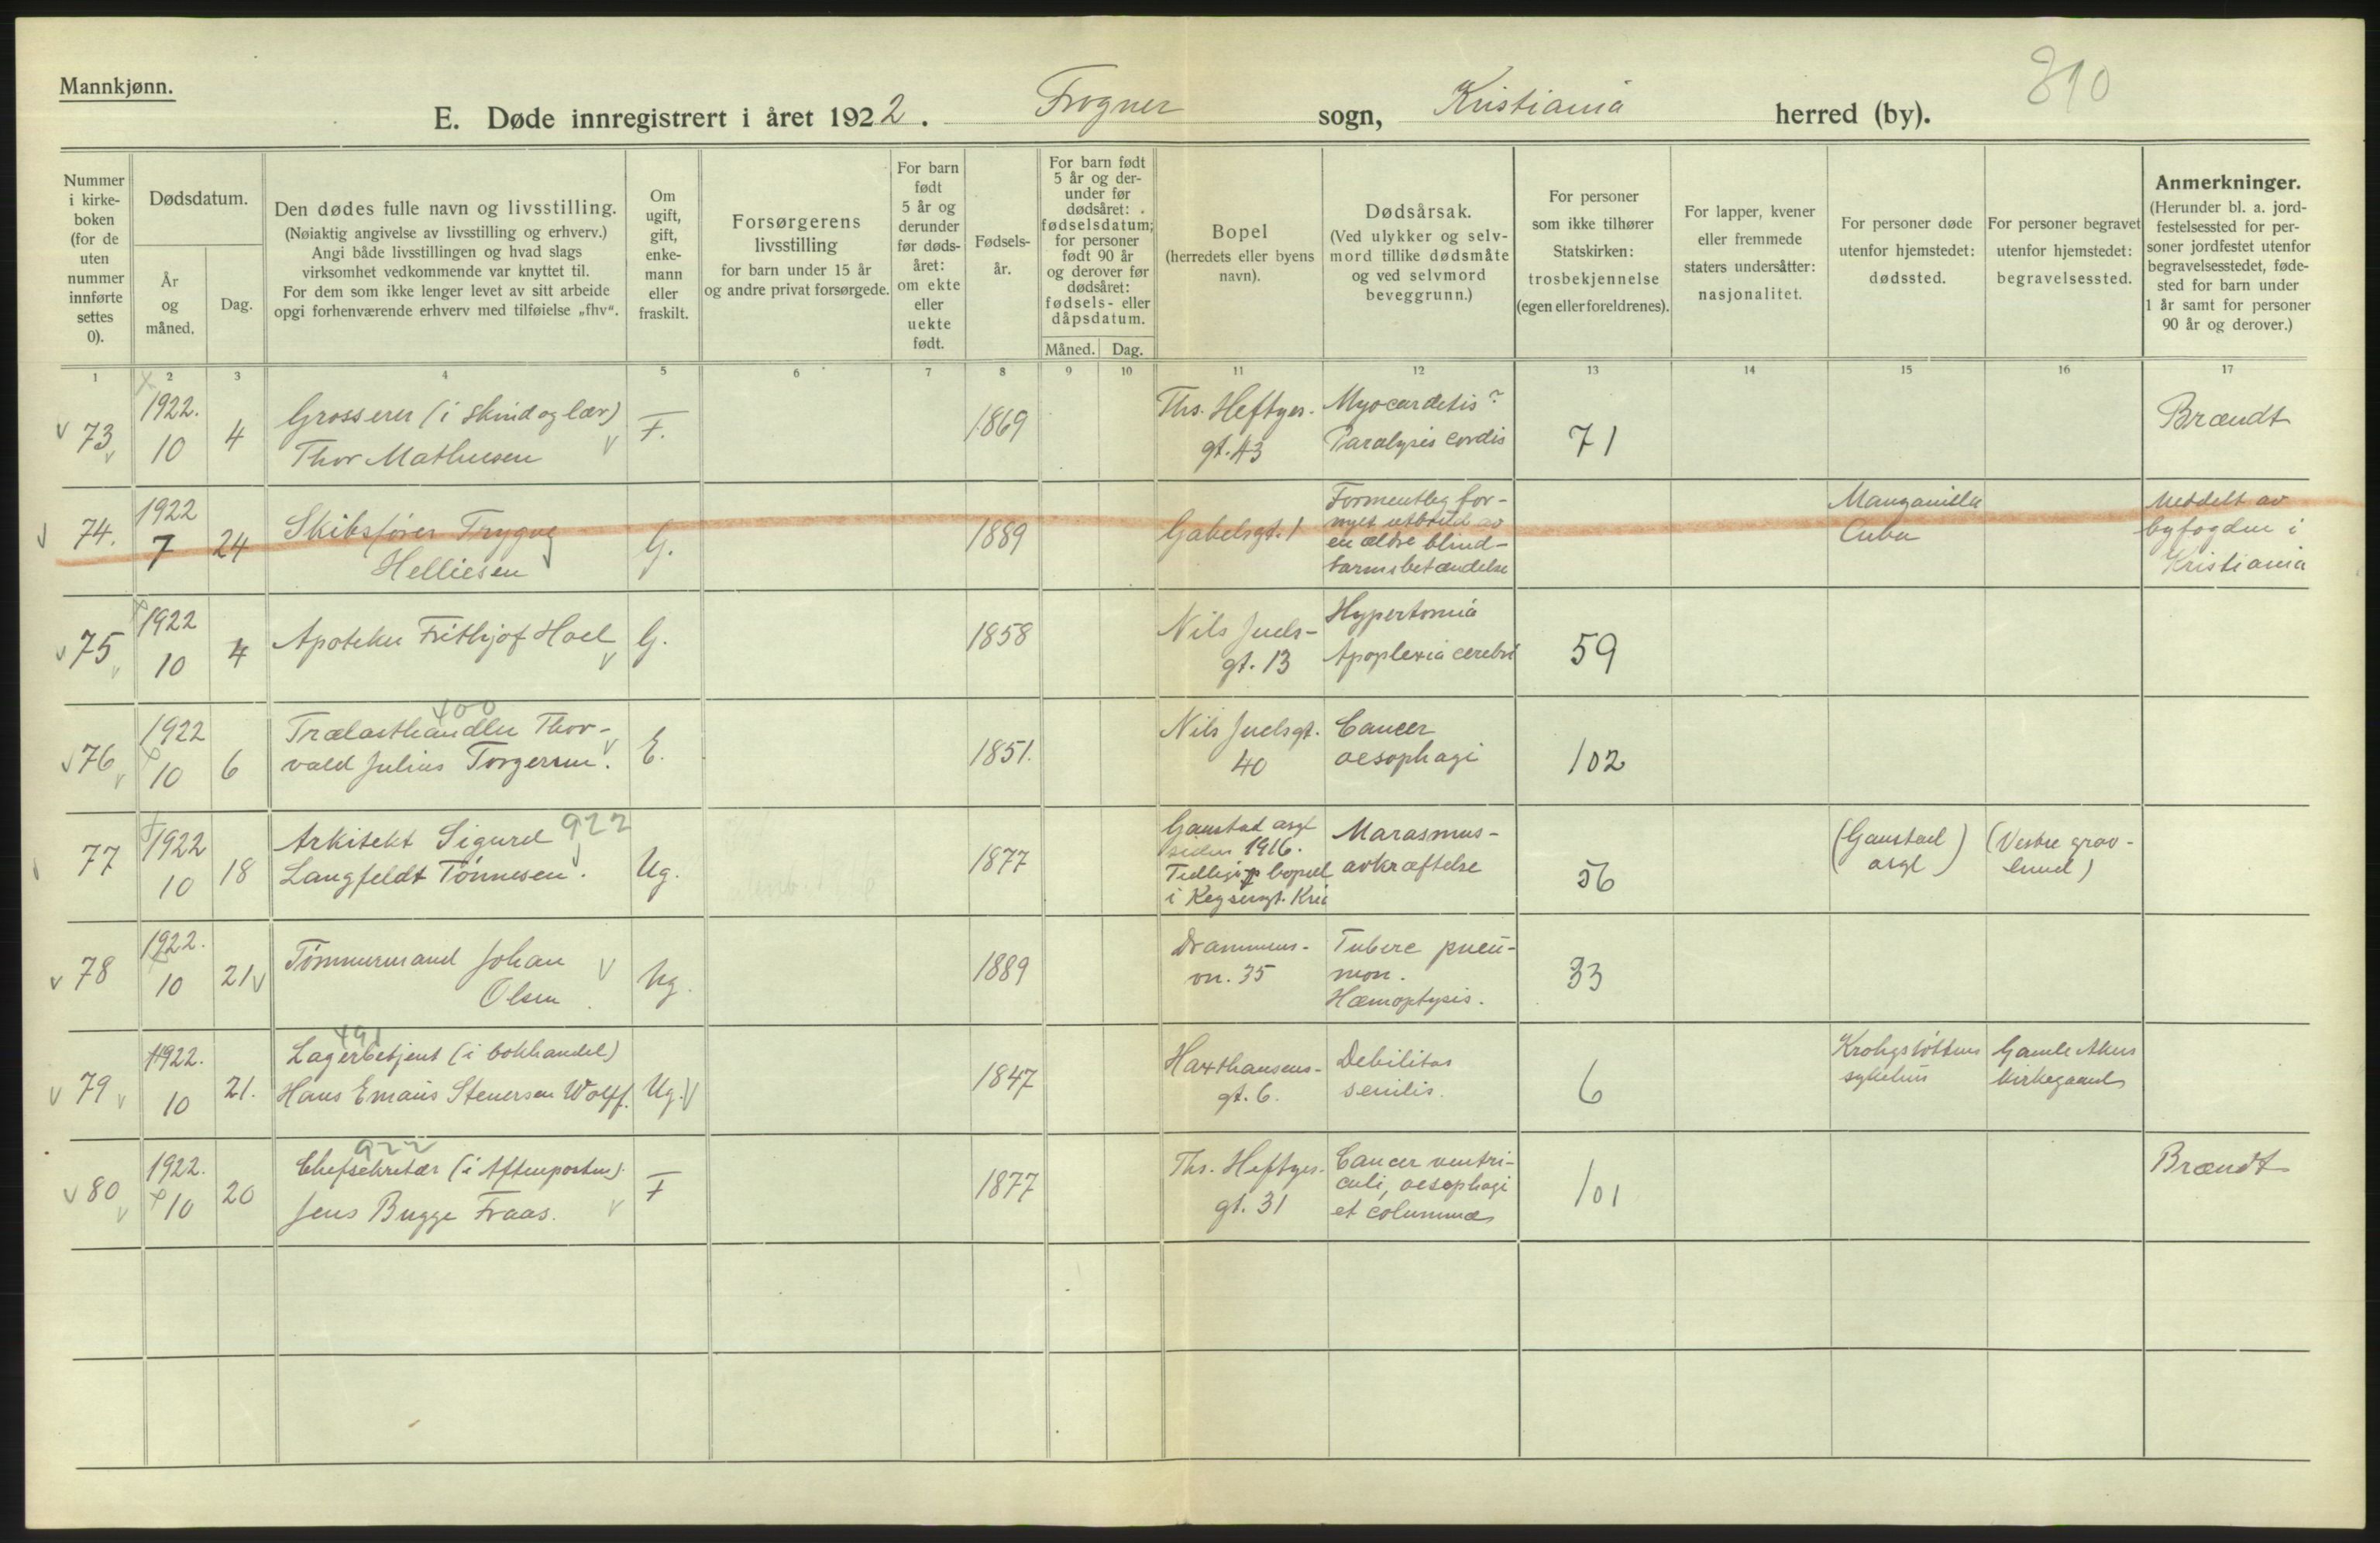 Mannkjønn.
890
E. Døde innregistrert i året 1922. Frogner sogn, Kristiania herred (by).
Nummer i kirke- boken (for de uten nummer innførte settes 0).
Dødsdatum.
År og måned.
Dag.
Den dødes fulle navn og livsstilling.
(Nøiaktig angivelse av livsstilling og erhverv.)
Angi både livsstillingen og hvad slags
virksomhet vedkommende var knyttet til.
For dem som ikke lenger levet av sitt arbeide
opgi forhenværende erhverv med tilføielse „fhv“.
Om ugift, gift, enke- mann eller fraskilt.
Forsørgerens
livsstilling
for barn under 15 år
og andre privat forsørgede.
For barn født 5 år og derunder før døds- året: om ekte eller uekte født.
Fødsels- år.
For barn født 5 år og der- under før dødsåret: fødselsdatum; for personer født 90 år og derover før dødsåret: fødsels- eller dåpsdatum.
Måned. Dag.
Bopel
(herredets eller byens
navn).
Dødsårsak.
(Ved ulykker og selv-
mord tillike dødsmåte
og ved selvmord
beveggrunn.)
For personer
som ikke tilhører
Statskirken:
trosbekjennelse
(egen eller foreldrenes).
For lapper, kvener
eller fremmede
staters undersåtter:
nasjonalitet.
For personer døde
utenfor hjemstedet:
dødssted.
For personer begravet
utenfor hjemstedet:
begravelsessted.
Anmerkninger.
(Herunder bl. a. jord-
festelsessted for per-
soner jordfestet utenfor
begravelsesstedet, føde-
sted for barn under
1 år samt for personer
90 år og derover.)
1 2 3 4 5 6 7 8 9 10 11 12 13 14 15 16 17
73 1922. 10 4
Grosserer (i skind og lær)
Thor Mathiesen
F. 1869
Ths. Heftyes-
gt. 43
Myocarditis?
Paralysis cordis
71
Brændt
74. 1922 7 24
Skibsfører Trygve
Helliesen
G. 1889
Gabelsgt. 1
Formentlig for-
nyet utbrud av
en ældre blind-
tarmsbetændelse
Manzanilla
Cuba
Meddelt av
byfogden i
Kristiania
75 1922 10 4
Apoteker Frithjof Hoel
G. 1858
Nils Juels-
gt. 13
Hypertonia
Apoplexia cerebri
59
76 1922 10 6
400
Trælasthandler Thor-
vald Julius Torgersen.
E. 1851.
Nils Juelsgt.
40
Cancer
aesophagi
102
77 1922 10 18
922
Arkitekt Sigurd
Langfeldt Tönnesen.
Ug. 1877
Gaustad asyl
siden 1916.
Tidligere bopæl
i Keysersgt. Kria
Marasmus-
avkræftelse
56
(Gaustad
asyl)
(Vestre grav-
lund)
78 1922. 10 21
Tömmermand Johan
Olsen
Ug. 1889
Drammens-
vn. 35
Tuberc pneu-
mon.
Hæmoptysis.
33
79 1922. 10 21.
491
Lagerbetjent (i bokhandel)
Hans Emaus Stenersen Wolff.
Ug. 1847
Haxthausens-
gt. 6.
Debilitas
senilis.
6
Krohgstøttens
sykehus
Gamle Akers
kirkegaard
80 1922. 10 20
922
Chefsekretær (i Aftenposten)
Jens Bugge Fraas.
F 1877
Ths. Heftyes-
gt. 31
Cancer ventri-
culi, oesophagi
et columnae
101
Brændt